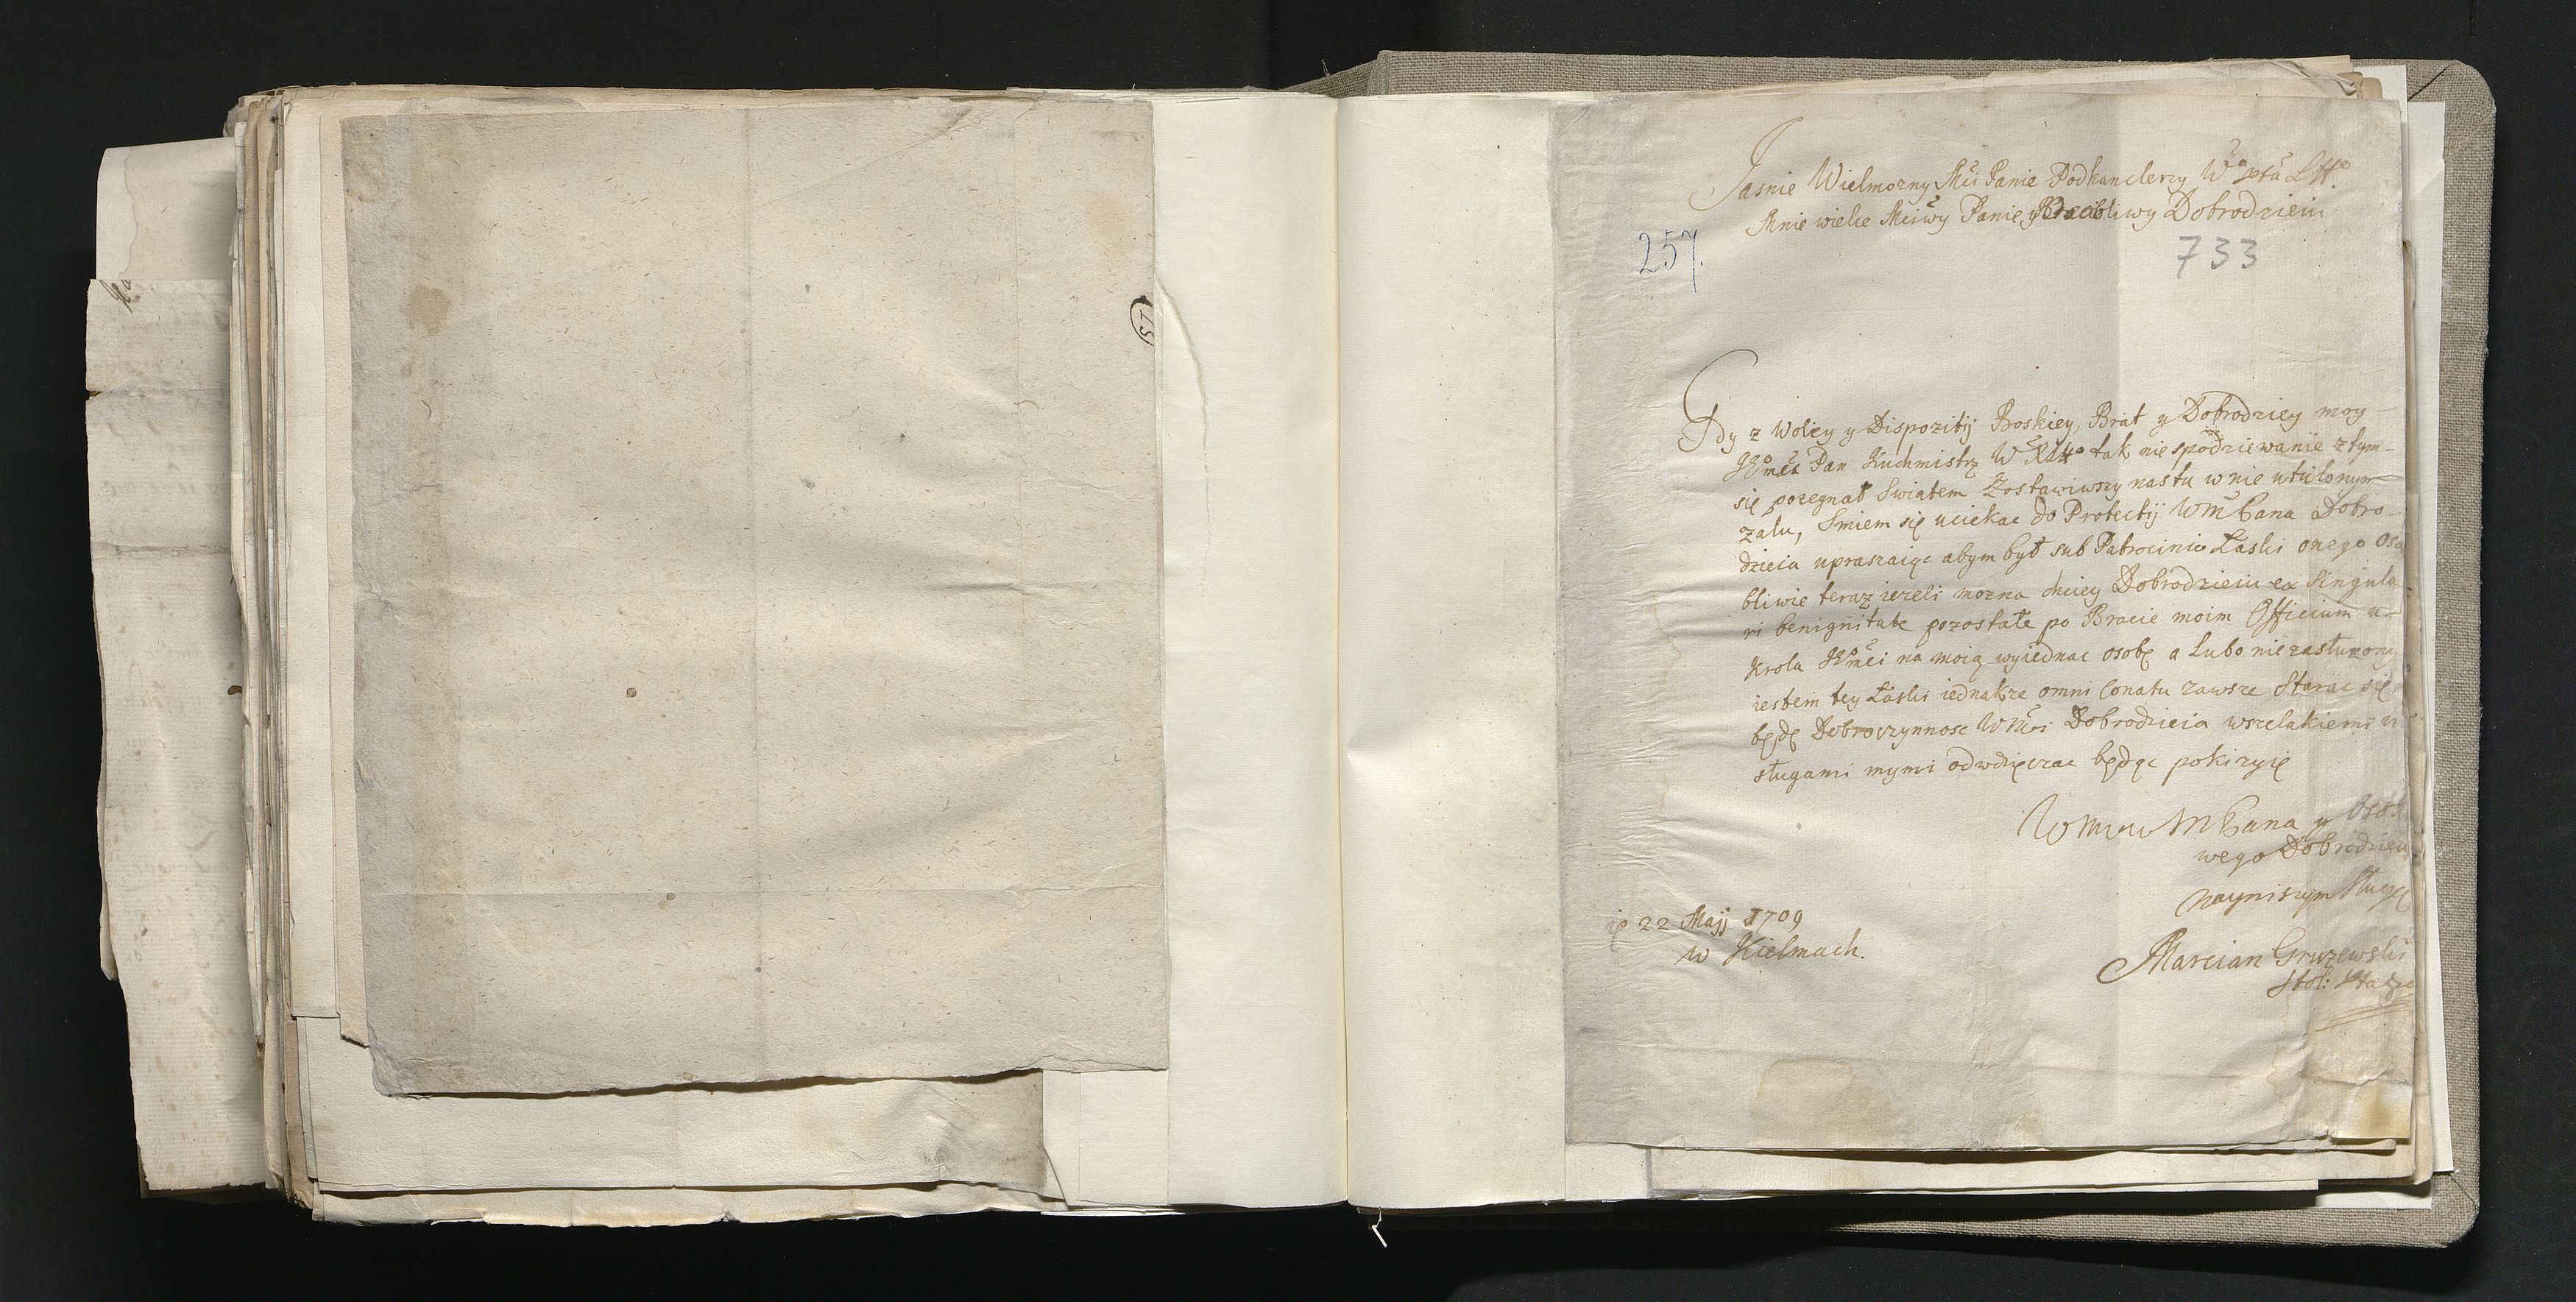 Jasnie Wielmozny Mci Panie Podkanclerzy W°
Mnie wielce Mciwy Panie y Dobrodzieiu
257.
733
Gdy z Woley y Dispozitij Boskiey, Brat y Dobrodziey moy
Jgomci Pan Kuchmistrz W tak niespodziewanie z tym
się pozegnał Swiatem Zostawiwszy nas tu w nie utulonym
zalu, Smiem się uciekac do Protectij WM Pana Dobro-
dzieia upraszaiąc abym był sub Patrocinio Łaski onego Oso
bliwie teraz iezeli mozna chciey Dobrodzieiu ex Singula
ri benignitate pozostałe po Bracie moim Officium u
Krola Jgomci na moią wyiednac osobę a Lubo niezasłuzony
iestem tey Łaski iednakze omni Conatu zawsze Starac się
będę Dobroczynnosc WMci Dobrodzieia wszelakiemi u
sługami mymi odwdzięczac będąc poki zyię
WMMM Pana y Osobli
wego Dobrodzieia
Nayniszym Sługą
22 Maij 1709
w Kielmach.
Marcian Gruzewski
Stol: